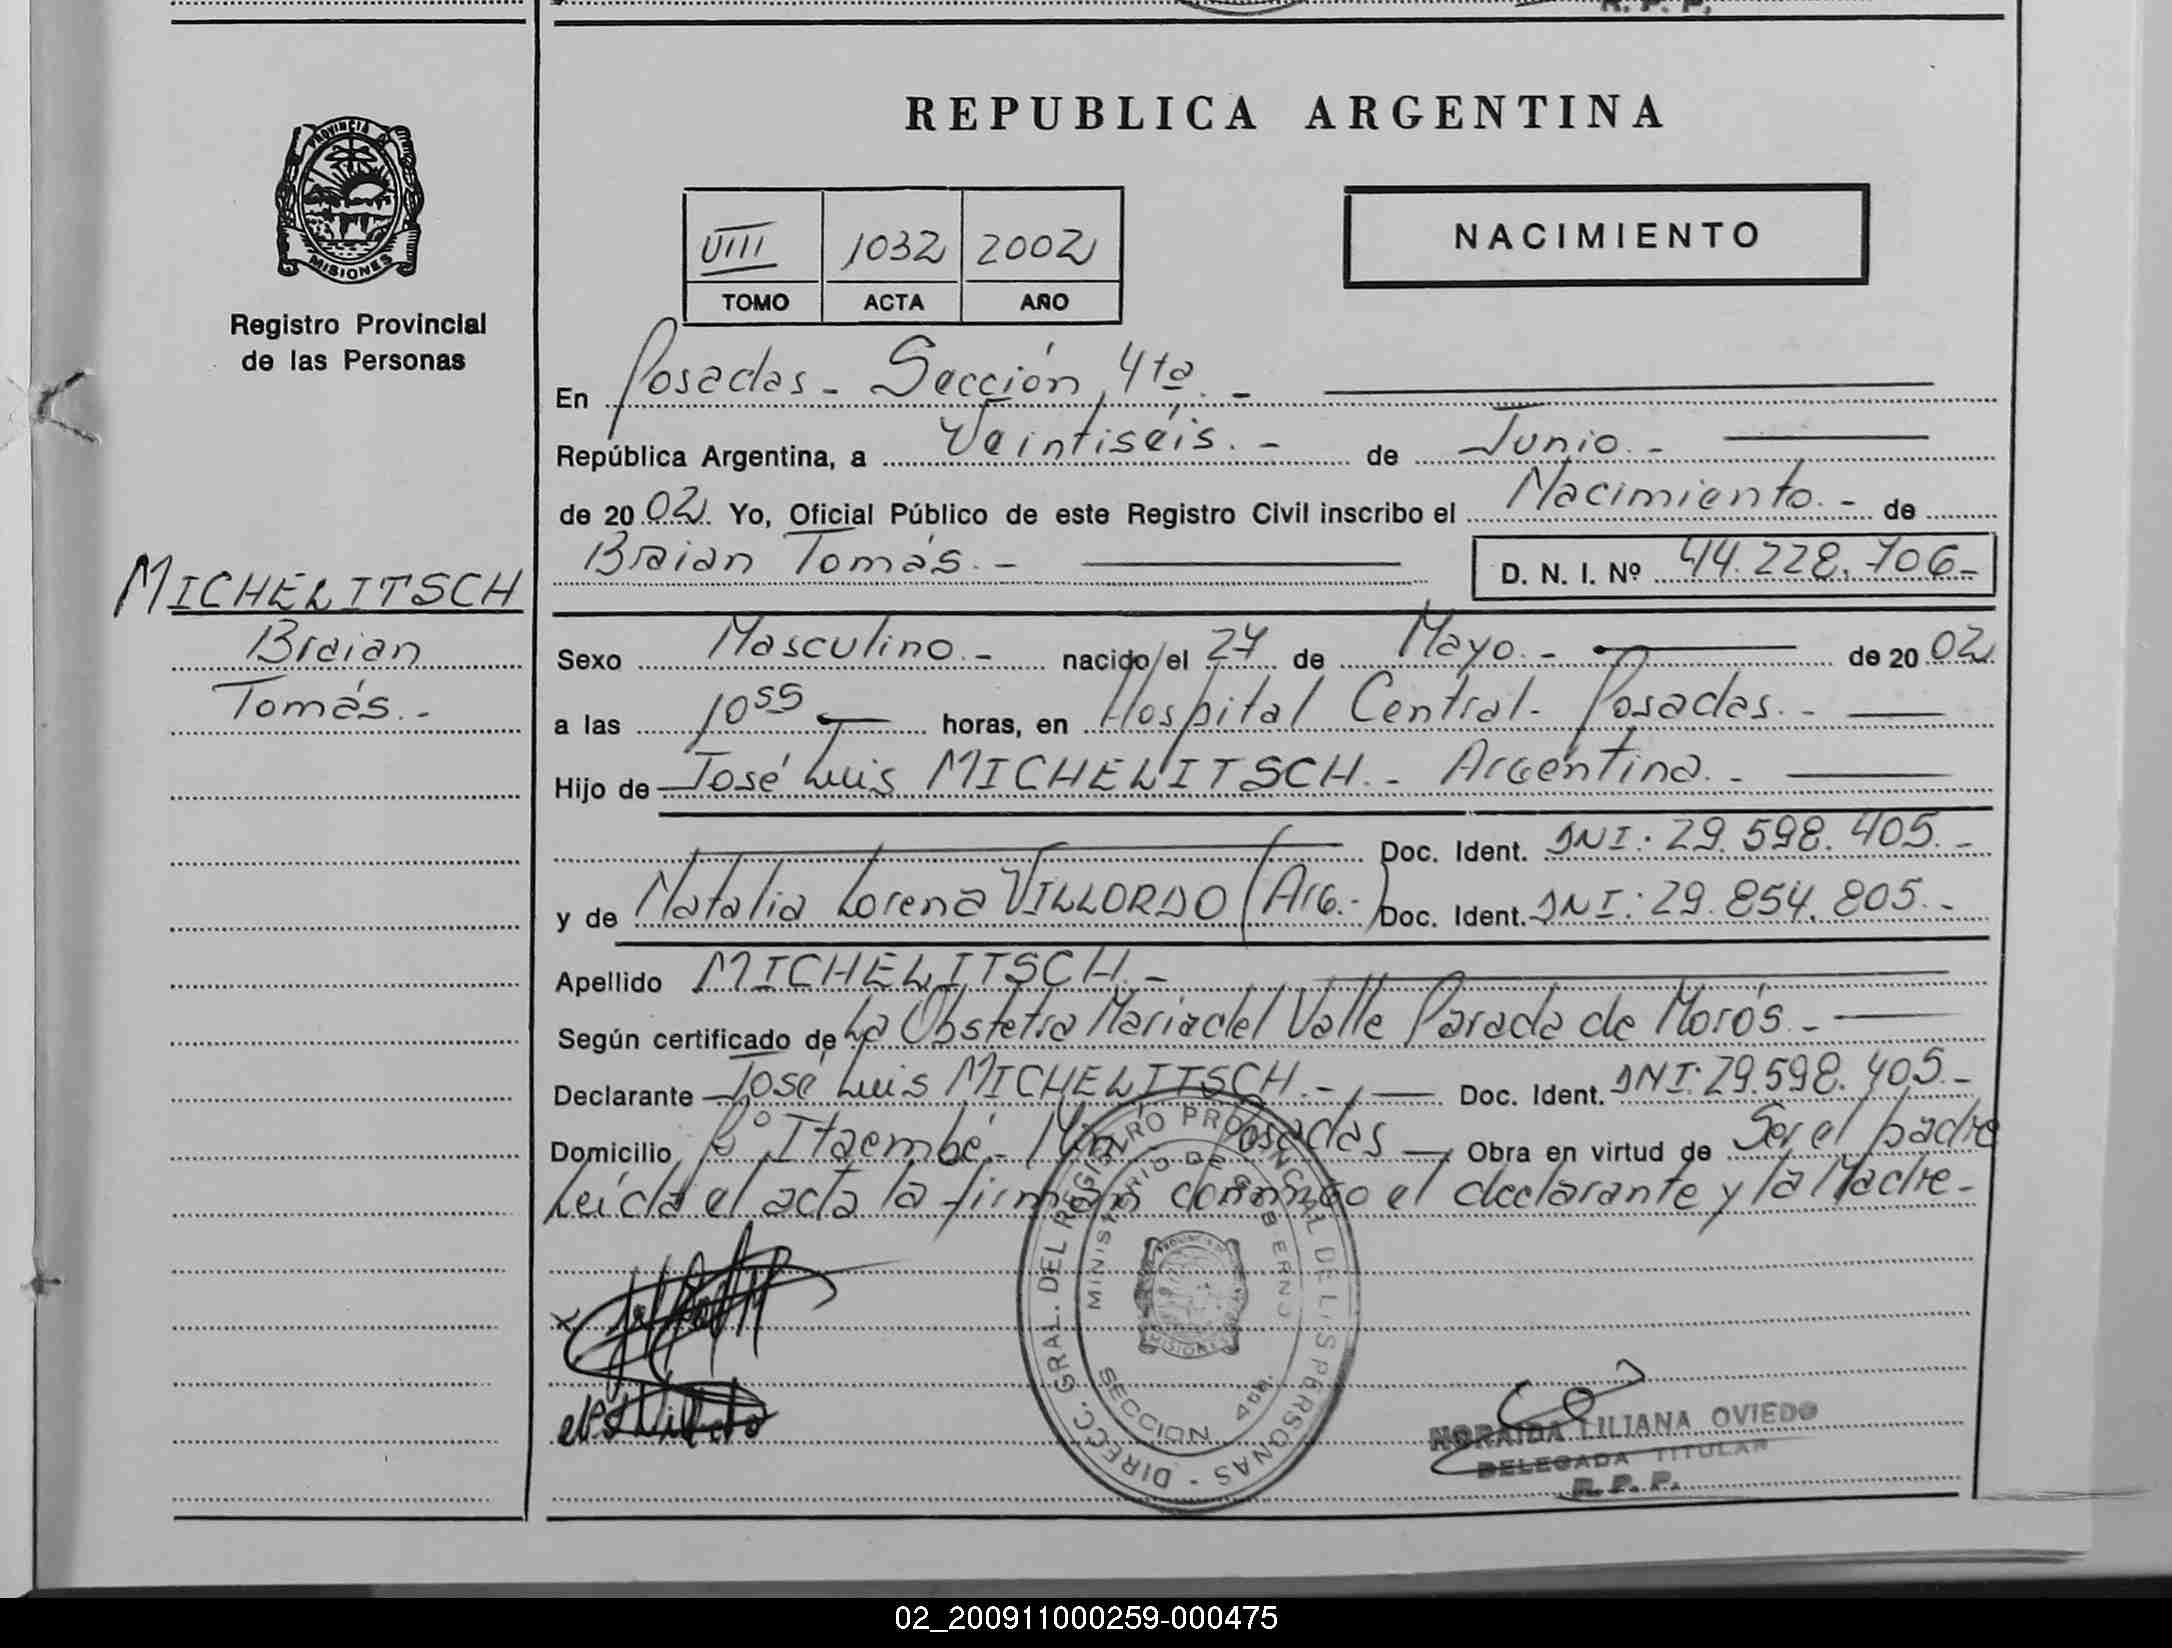 R. P. P.
REPUBLICA ARGENTINA
PROVINCIA DE
MISIONES
Registro Provincial
de las Personas
VIII 1032 2002
TOMO ACTA AÑO
NACIMIENTO
En Posadas - Sección 4ta. -
República Argentina, a Veintiséis. - de Junio. -
de 2002. Yo, Oficial Público de este Registro Civil inscribo el Nacimiento. - de
Braian Tomás. - D. N. I. Nº 44.228.706-
MICHELITSCH
Braian
Tomás. -
Sexo Masculino. - nacido el 27 de Mayo. - de 2002
a las 10 55 horas, en Hospital Central - Posadas. -
Hijo de José Luis MICHELITSCH. - Argentina. -
Doc. Ident. DNI: 29.598.405. -
y de Natalia Lorena VILLORDO (Arg. -) Doc. Ident. DNI: 29.854.805. -
Apellido MICHELITSCH. -
Según certificado de La Obstetra Maria del Valle Parada de Morós. -
Declarante José Luis MICHELITSCH. - Doc. Ident. DNI: 29.598.405. -
Domicilio Bº Itaembé - Miní - Posadas Obra en virtud de Ser el padre
Leída el acta la firman conmigo el declarante y la Madre -
DIRECC. GRAL. DEL REGISTRO PROVINCIAL DE LAS PERSONAS -
MINISTERIO DE GOBIERNO
SECCION 4ta.
MISIONES
NORAIDA LILIANA OVIEDO
DELEGADA TITULAR
R. P. P.
02_200911000259-000475